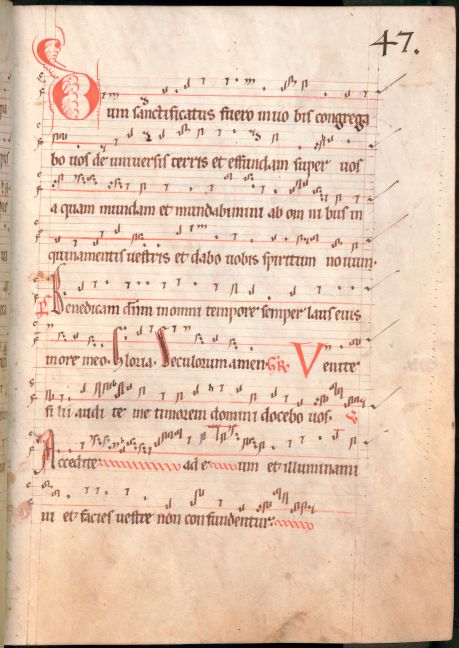 47.
Cum sanctificatus fuero in uo bis congrega
bo uos de uniuersis terris et effundam super uos
a quam mundam et mundabimini ab om ni bus in
quinamentis uestris et dabo uobis spiritum nouum.
Benedicam dnm in omni tempore semper laus eius
in ore meo. Gloria. Seculorum amen. Gr. Venite
fi lii audi te me timorem domini docebo uos.
Accedite ad e um et illuminami
ni et facies uestre non confundentur.